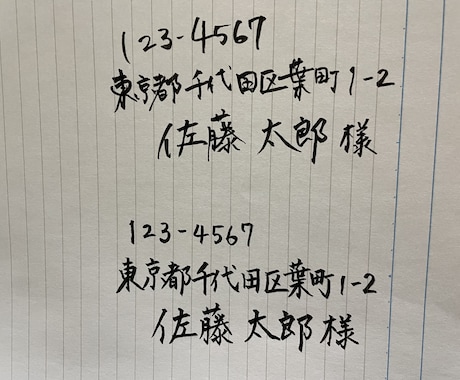 123-4567
東京都千代田区葉町1-2
佐藤 太郎 様
123-4567
東京都千代田区葉町1-2
佐藤 太郎 様